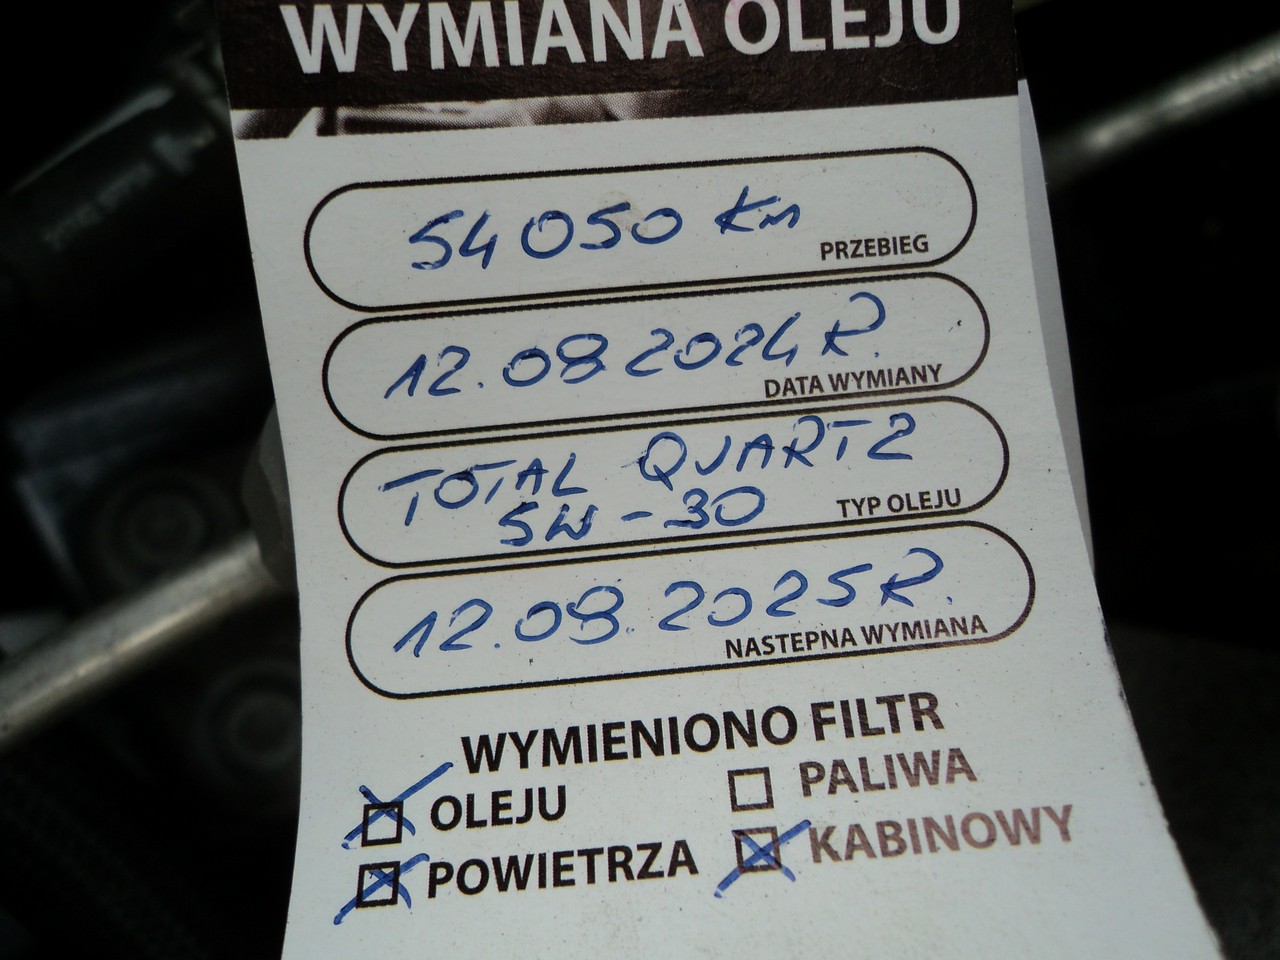 WYMIANA OLEJU
54 050 Km
PRZEBIEG
12.08.2024 R.
DATA WYMIANY
TOTAL QUARTZ
5W-30
TYP OLEJU
12.08.2025 R.
NASTEPNA WYMIANA
WYMIENIONO FILTR
OLEJU
PALIWA
POWIETRZA
KABINOWY